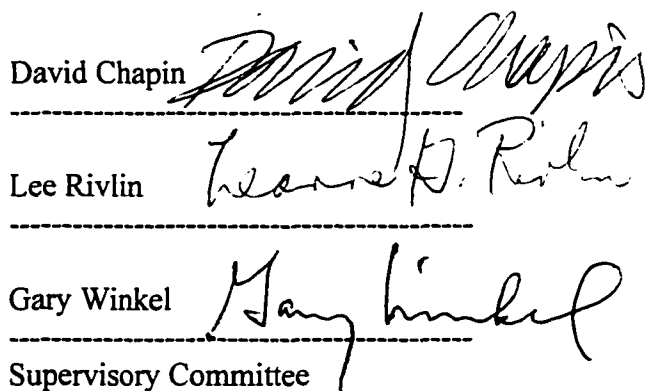 David Chapin David Chapin
Lee Rivlin Leanne G. Rivlin
Gary Winkel Gary Winkel
Supervisory Committee